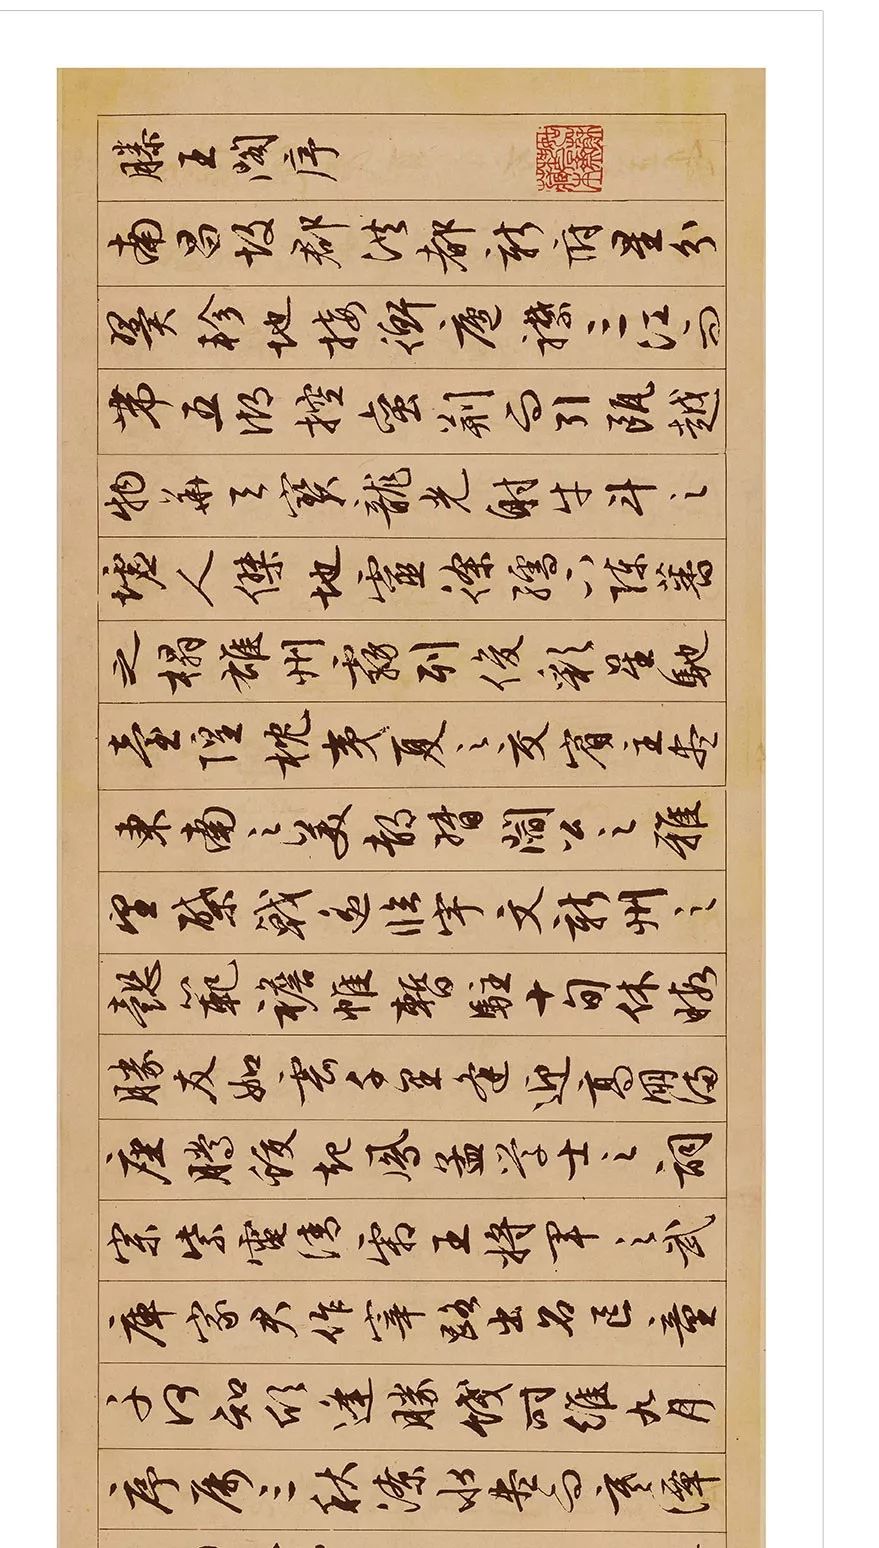 滕王閣序
南昌故郡洪都新府星分
翼軫地接衡廬襟三江而
帶五湖控蠻荊而引甌越
物華天寶龍光射牛斗之
墟人傑地靈徐孺下陳蕃
之榻雄州霧列俊彩星馳
臺隍枕夷夏之交賓主盡
東南之美都督閻公之雅
望棨戟遙臨宇文新州之
懿範襜帷暫駐十旬休暇
勝友如雲千里逢迎高朋滿
座騰蛟起鳳孟學士之詞
宗紫電清霜王將軍之武
庫家君作宰路出名區童
子何知躬逢勝餞時維九月
序屬三秋潦水盡而寒潭